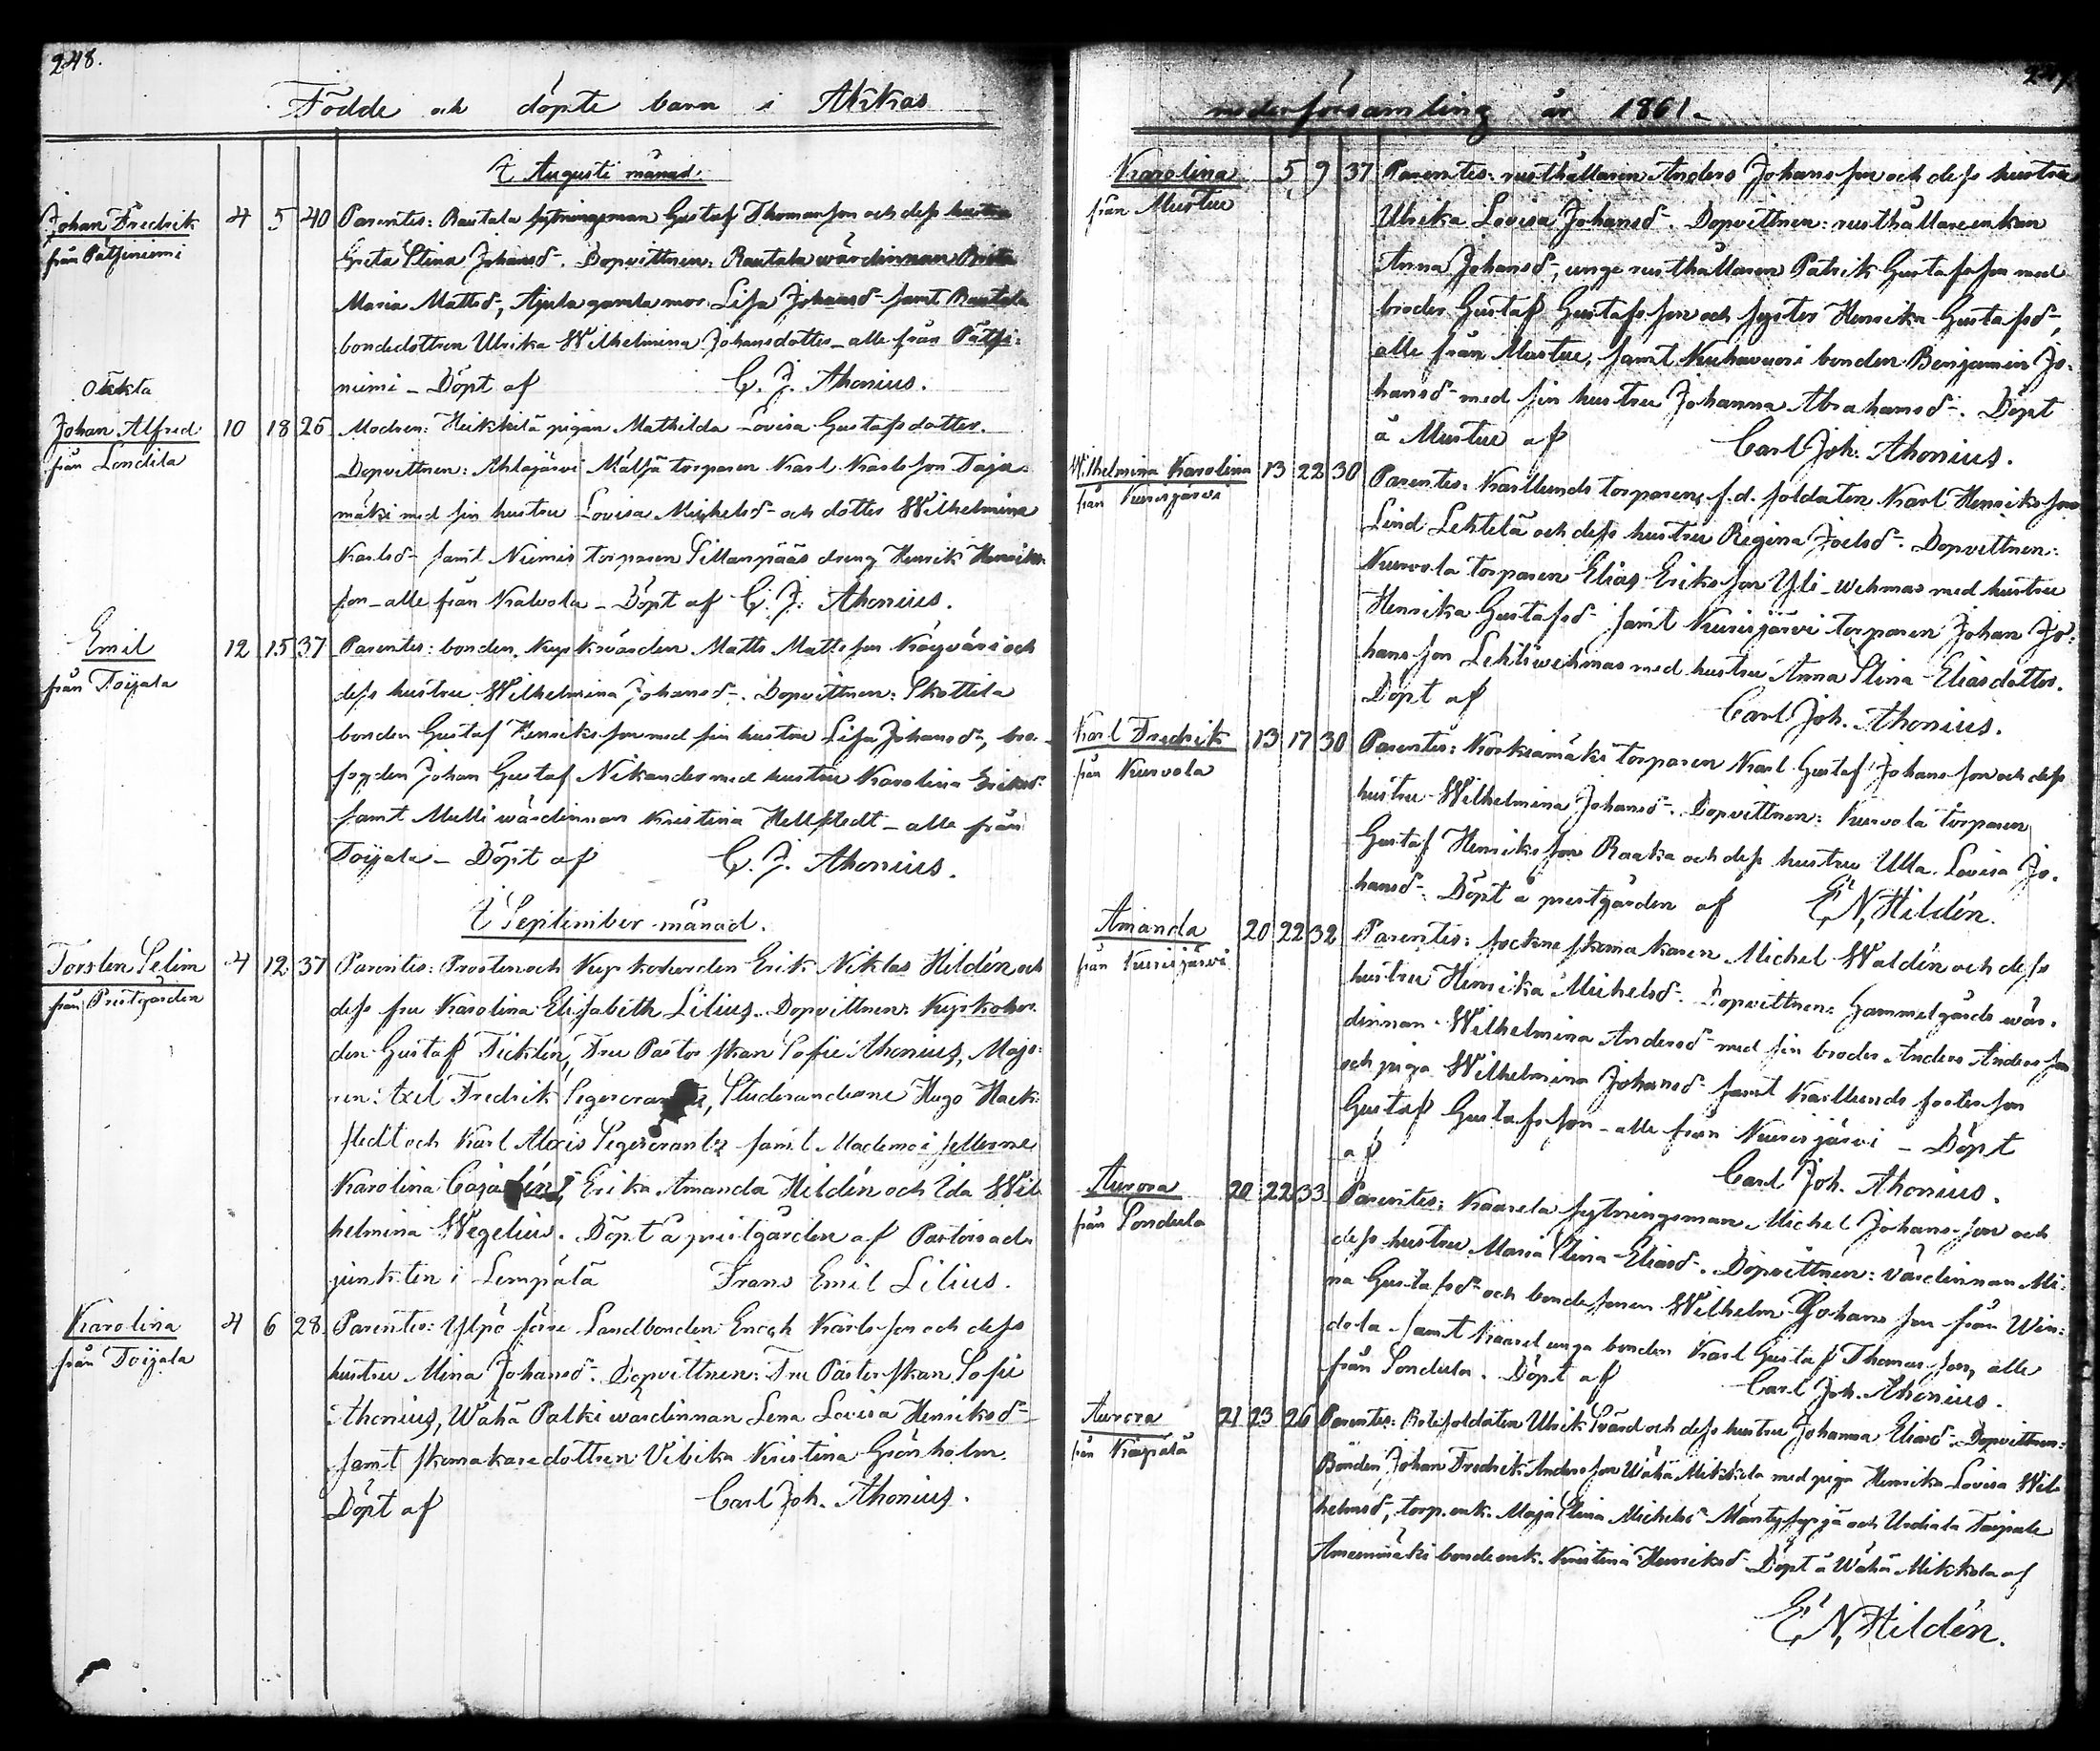 248.
Födde och döpte barn i Akkas
I Augusti månad.
Johan Fredrik
från Pätsiniemi
4 5 40 Parentes: Rautala sytningsman Gustaf Thomasson och dess hustru
Greta Stina Johansd-. Dopvittnen: Rautala wärdinnan Brita
Maria Mattsd-, Ajula gamla mor Lisa Johansd- samt Rautala
bondedottren Ulrika Wilhelmina Johansdotter - alle från Pätsi-
niemi - Döpt af C. J. Ahonius.
Oäkta
Johan Alfred
från Londila
10 18 26 Modren: Heikkilä pigan Mathilda Lovisa Gustafsdotter.
Dopvittnen: Ahlajärvi Mälsä torparen Karl Karlsson Taja-
mäki med sin hustru Lovisa Michelsd- och dotter Wilhelmina
Karlsd- samt Niemis torparen Sillanpääs dreng Henrik Henriks-
son - alle från Kalvola - Döpt af C. J. Ahonius.
Emil
från Toijala
12 15 37 Parentes: bonden, Kyrkvärden Matts Mattsson Käyväri och
dess hustru Wilhelmina Johansd-. Dopvittnen: Skottila
bonden Gustaf Henriksson med sin hustru Lisa Johansd-, bro-
fogden Johan Gustaf Nikander med hustru Karolina Eriksd-
samt Mulli wärdinnan Kristina Hellstedt - alle från
Toijala - Döpt af C. J. Ahonius.
I September månad.
Torsten Selim
från Prestgården
4 12 37 Parentes: Prosten och Kyrkoherden Erik Niklas Hildén och
dess fru Karolina Elisabeth Lilius. Dopvittnen: Kyrkoher-
den Gustaf Ticklén, Fru Pastorskan Sofie Ahonius, Majo-
ren: Axel Fredrik Segercrantz, Studerandene Hugo Hack-
stedt och Karl Alexis Segercrantz samt Mademoisellerne
Karolina Cajalén, Erika Amanda Hildén och Ida Wil-
helmina Wegelius. Döpt å prestgården af Pastorsad-
junkten i Lempälä Frans Emil Lilius.
Karolina
från Toijala
4 6 28 Parentes: Ylpö förre Landbonden Enoch Karlsson och dess
hustru Mina Johansd-. Dopvittnen: Fru Pastorskan Sofie
Ahonius, Wähä Palki wärdinnan Lena Lovisa Henriksd-
samt skomakaredottren Vibika Kristina Grönholm.
Döpt af Carl Joh. Ahonius.
moderförsamling år 1861.
Karolina
från Mustue
5 9 37 Parentes: rusthållaren Anders Johansson och dess hustru
Ulrika Lovisa Johansd-. Dopvittnen: rusthållareenkan
Anna Johansd-, unge rusthållaren Patrik Gustafsson med
broder Gustaf Gustafsson och syster Henrika Gustafsd-,
alle från Mustue, samt Kuhavuori bonden Benjamin Jo-
hansd- med sin hustru Johanna Abrahamsd-. Döpt
å Mustue af Carl Joh. Ahonius.
Wilhelmina Karolina
från Kurisjärvi
13 22 30 Parentes: Karllunds torparen, f.d. soldaten Karl Henriksson
Lind Lehtelä och dess hustru Regina Joelsd-. Dopvittnen:
Kurvola torparen Elias Eriksson Yli-Wehmas med hustru
Henrika Gustafsd- samt Kurisjärvi torparen Johan Jo-
hansson Lehtiwehmas med hustru Anna Stina Eliasdotter.
Döpt af Carl Joh. Ahonius.
Karl Fredrik
från Kurvola
13 17 30 Parentes: Korkiamäki torparen Karl Gustaf Johansson och dess
hustru Wilhelmina Johansd-. Dopvittnen: Kurvola torparen
Gustaf Henriksson Raaka och dess hustru Ulla Lovisa Jo-
hansd-. Döpt å prestgården af E. N. Hildén.
Amanda
från Kurisjärvi
20 22 32 Parentes: sockneskomakaren Michel Waldén och dess
hustru Henrika Michelsd-. Dopvittnen: Gammelgårds wär-
dinnan Wilhelmina Andersd- med sin broder Anders Andersson
och piga Wilhelmina Johansd- samt Karllunds fosterson
Gustaf Gustafsson - alle från Kurisjärvi - Döpt
af Carl Joh. Ahonius.
Aurora
från Sondula
20 22 33 Parentes: Kaarela sytningsman Michel Johansson och
dess hustru Maria Stina Eliasd-. Dopvittnen: värdinnan Mi-
na Gustafsd- och bondesonen Wilhelm Johansson från Win-
dala samt Kaarel unga bonden Karl Gustaf Thomasson, alle
från Sondula. Döpt af Carl Joh. Ahonius.
Aurora
från Käpälä
21 23 26 Parentes: Rotesoldaten Ulrik Svärd och dess hustru Johanna Eliasd-. Dopvittnen:
Bonden Johan Fredrik Andersson Wähä Mikkola med piga Henrika Lovisa Wil-
helmsd-, torp.enk. Maja Stina Michelsd- Mäntysyrjä och Urdiala Taipale
bondeenk. Kristina Henriksd- Döpt å Wähä Mikkola af
E. N. Hildén.